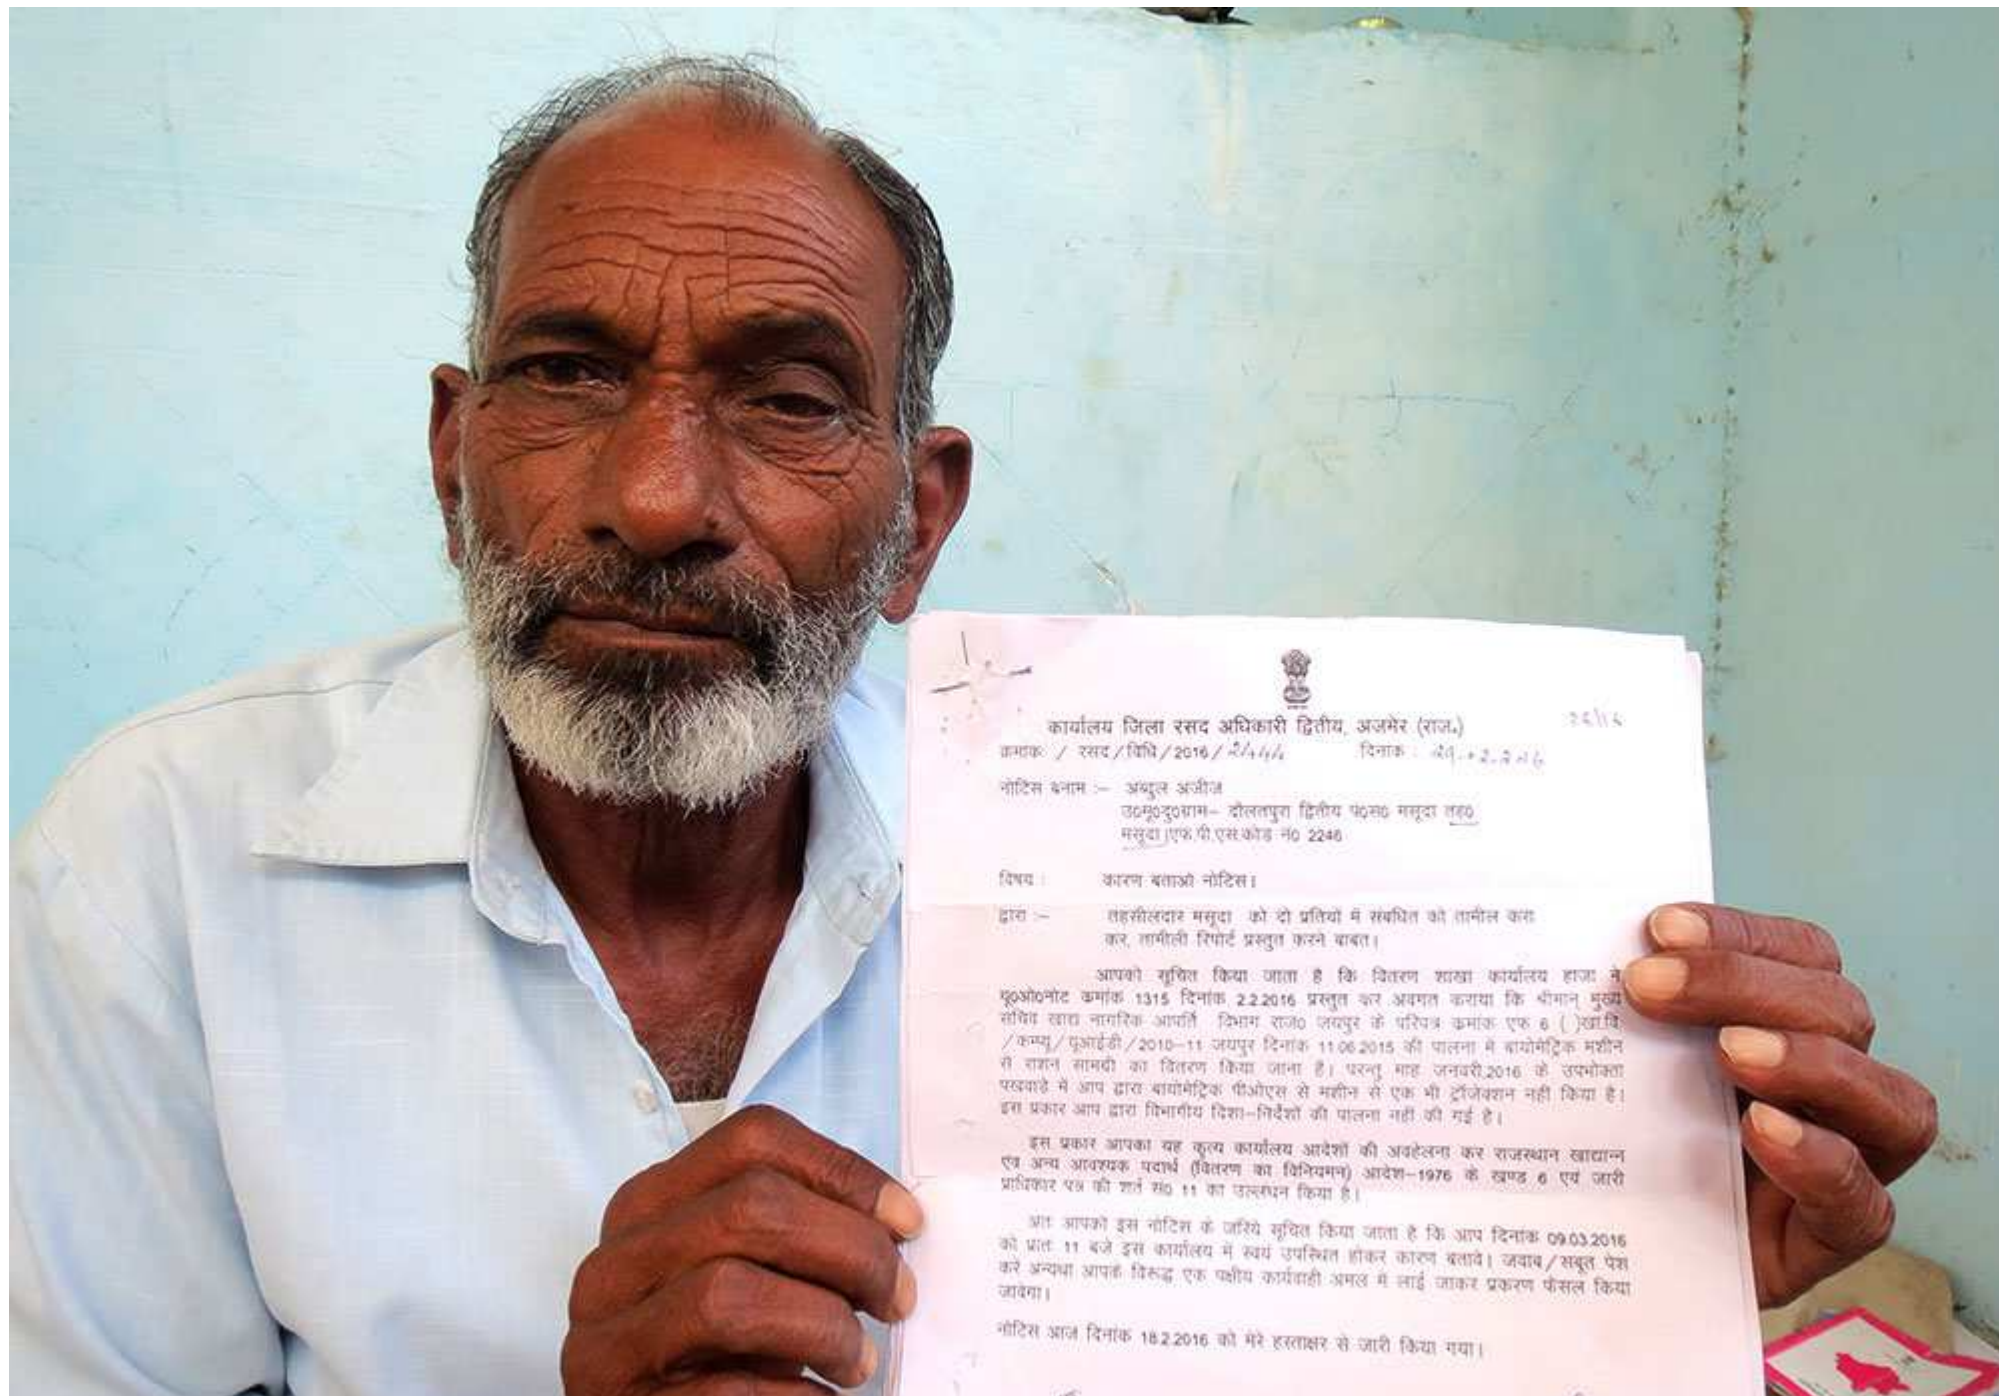 कार्यालय जिला रसद अधिकारी द्वितीय, अजमेर (राज.)
क्रमांक / रसद / विधि / 2016 / दिनांक :
नोटिस बनाम :– अब्दुल अजीज
उ०मू०दु०ग्राम– दौलतपुरा द्वितीय पं०स० मसूदा तह०
मसूदा एफ.पी.एस.कोड नं० 2246
विषय : कारण बताओ नोटिस।
द्वारा :– तहसीलदार मसूदा को दो प्रतियों में संबधित को तामील करा
कर, तामीली रिपोर्ट प्रस्तुत करने बाबत।
आपको सूचित किया जाता है कि वितरण शाखा कार्यालय हाजा ने
यू०ओ०नोट क्रमांक 1315 दिनांक 2.2.2016 प्रस्तुत कर अवगत कराया कि श्रीमान् मुख्य
सचिव खाद्य नागरिक आपर्ति विभाग राज० जयपुर के परिपत्र क्रमांक एफ 6 ( )खा.वि.
/कम्प्यू/यूआईडी/2010–11 जयपुर दिनांक 11.06.2015 की पालना में बायोमेट्रिक मशीन
से राशन सामग्री का वितरण किया जाना है। परन्तु माह जनवरी,2016 के उपभोक्ता
पखवाडे में आप द्वारा बायोमेट्रिक पीओएस से मशीन से एक भी ट्रॉजेक्शन नहीं किया है।
इस प्रकार आप द्वारा विभागीय दिशा–निर्देशों की पालना नहीं की गई है।
इस प्रकार आपका यह कृत्य कार्यालय आदेशों की अवहेलना कर राजस्थान खाद्यान्न
एंव अन्य आवश्यक पदार्थ (वितरण का विनियमन) आदेश–1976 के खण्ड 6 एवं जारी
प्राधिकार पत्र की शर्त सं० 11 का उल्लंघन किया है।
अतः आपको इस नोटिस के जरिये सूचित किया जाता है कि आप दिनांक 09.03.2016
को प्रातः 11 बजे इस कार्यालय में स्वयं उपस्थित होकर कारण बतावें। जवाब/सबूत पेश
करें अन्यथा आपके विरूद्ध एक पक्षीय कार्यवाही अमल में लाई जाकर प्रकरण फैसल किया
जावेगा।
नोटिस आज दिनांक 18.2.2016 को मेरे हस्ताक्षर से जारी किया गया।